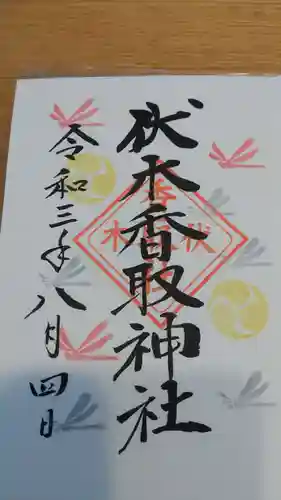 伏木香取神社
令和三年八月四日